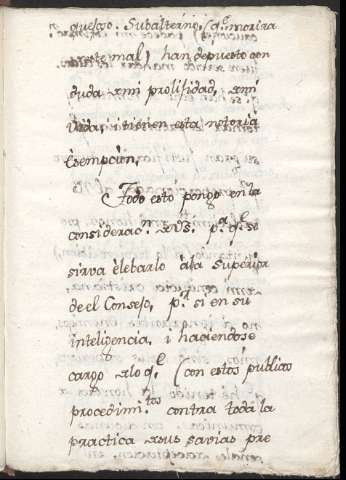 quexoso. Subalterno, (q.e morira
este mal) han depuesto con
duda a mi prolifidad, a mi
Vida, i tienen esta notoria
Esempcion,
Todo esto pongo en la
considerac.n a VS. p.a q.e se
sirva èlebarlo àla Superior
de el Consejo, p.r si en su
inteligencia, i haciendose
cargo a lo q.e (con estos publicos
procedimi.tos contra toda la
practica a sus savias pre